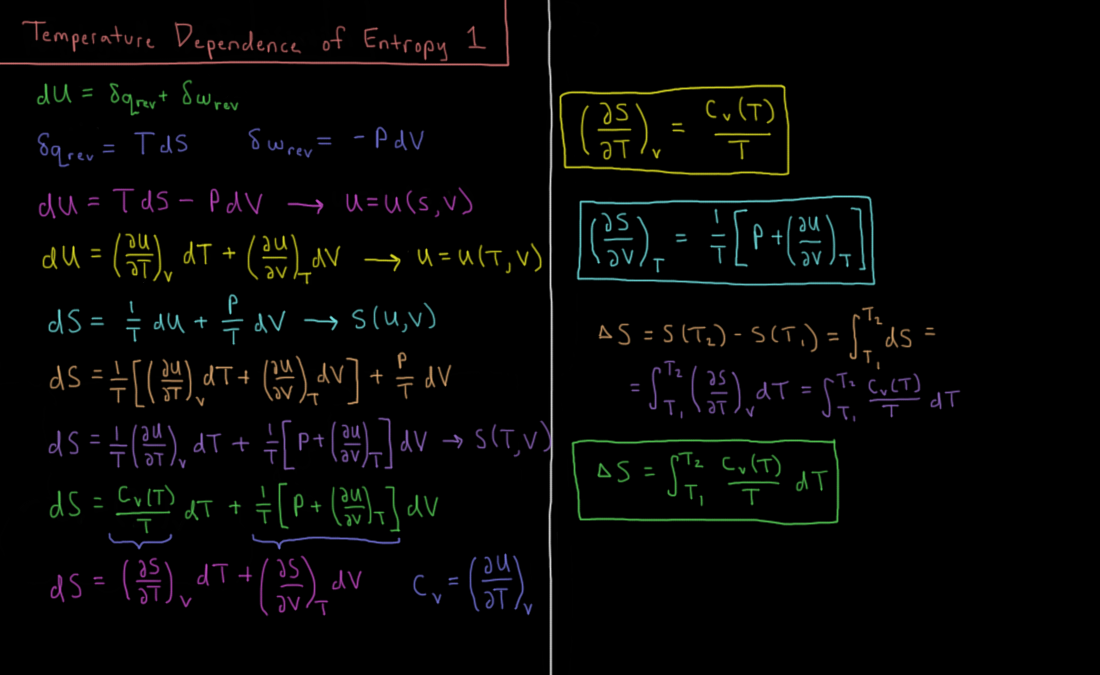 Temperature Dependence of Entropy 1
dU = δq_rev + δw_rev
δq_rev = TdS    δw_rev = -PdV
dU = TdS - PdV → U=U(S,V)
dU = (∂U/∂T)_V dT + (∂U/∂V)_T dV → U=U(T,V)
dS = 1/T dU + P/T dV → S(U,V)
dS = 1/T [(∂U/∂T)_V dT + (∂U/∂V)_T dV] + P/T dV
dS = 1/T (∂U/∂T)_V dT + 1/T [P + (∂U/∂V)_T] dV → S(T,V)
dS = C_V(T)/T dT + 1/T [P + (∂U/∂V)_T] dV
dS = (∂S/∂T)_V dT + (∂S/∂V)_T dV    C_V = (∂U/∂T)_V
(∂S/∂T)_V = C_V(T)/T
(∂S/∂V)_T = 1/T [P + (∂U/∂V)_T]
ΔS = S(T₂) - S(T₁) = ∫_T₁^T₂ dS =
= ∫_T₁^T₂ (∂S/∂T)_V dT = ∫_T₁^T₂ C_V(T)/T dT
ΔS = ∫_T₁^T₂ C_V(T)/T dT